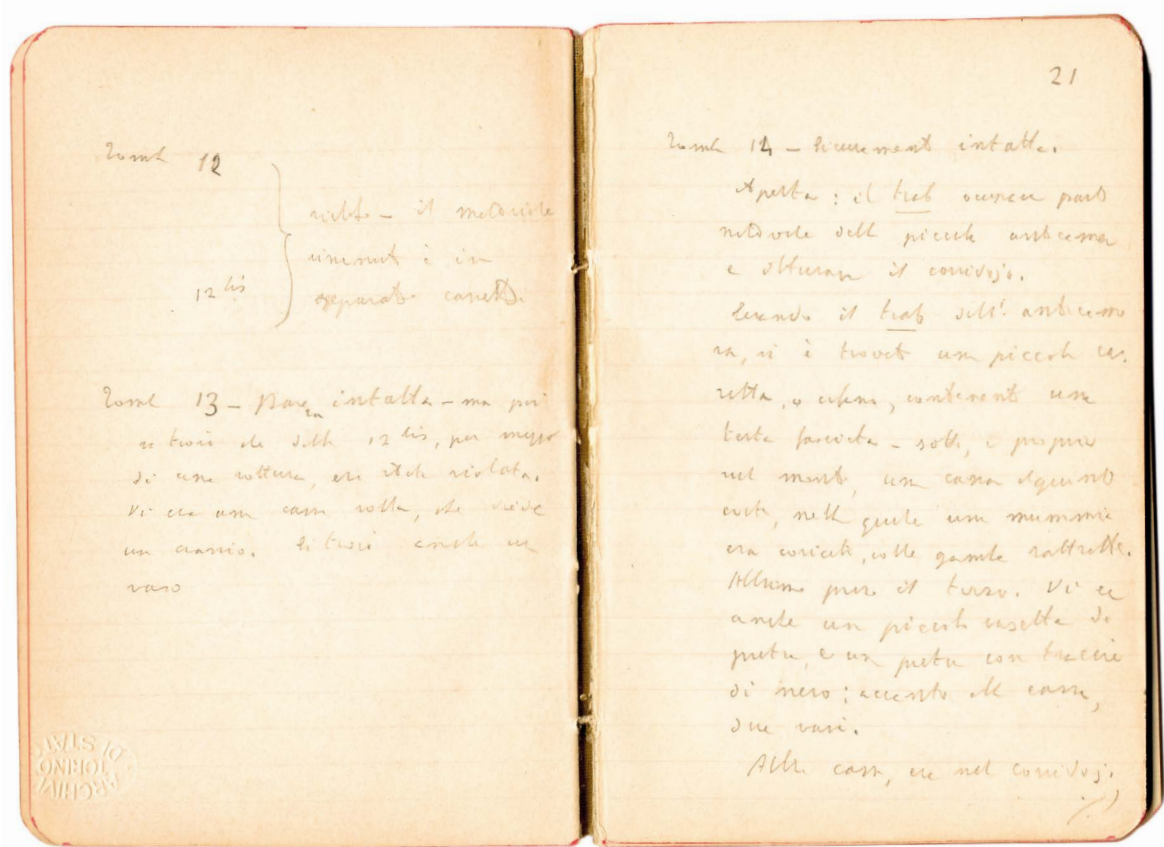 Tomba 12
12 bis
violate - il materiale
rinvenuto è in
separate cassette.
Tomba 13 - Pareva intatta - ma poi
si trovò che dalla 12 bis, per mezzo
di una rottura, era stata violata.
Vi era una cassa rotta, che diede
un cranio. Si trovò anche un
vaso
ARCHIVIO
DI STATO
TORINO
21
Tomba 14 - Sicuramente intatta.
Aperta: il tab occupava parte
notevole della piccola anticamera
e otturava il corridojo.
Levando il tab dell' anticame
ra, si è trovata una piccola cas.
setta, o cofano, contenente una
testa fasciata - sotto, e proprio
nel mezzo, una cassa alquanto
corta, nella quale una mummia
era coricata, colle gambe rattratte.
pure il Vi era
anche una piccola vasetta di
pietra, e una pietra con traccie
di nero; accanto alla cassa,
due vasi.
Altra cassa, era nel corridojo.